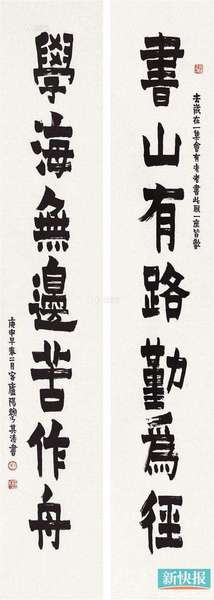 書山有路勤爲徑
去歲在一集會有老者書此聯一座皆
學海無邊苦作舟
庚申早春二月客廬陽
書
新快报